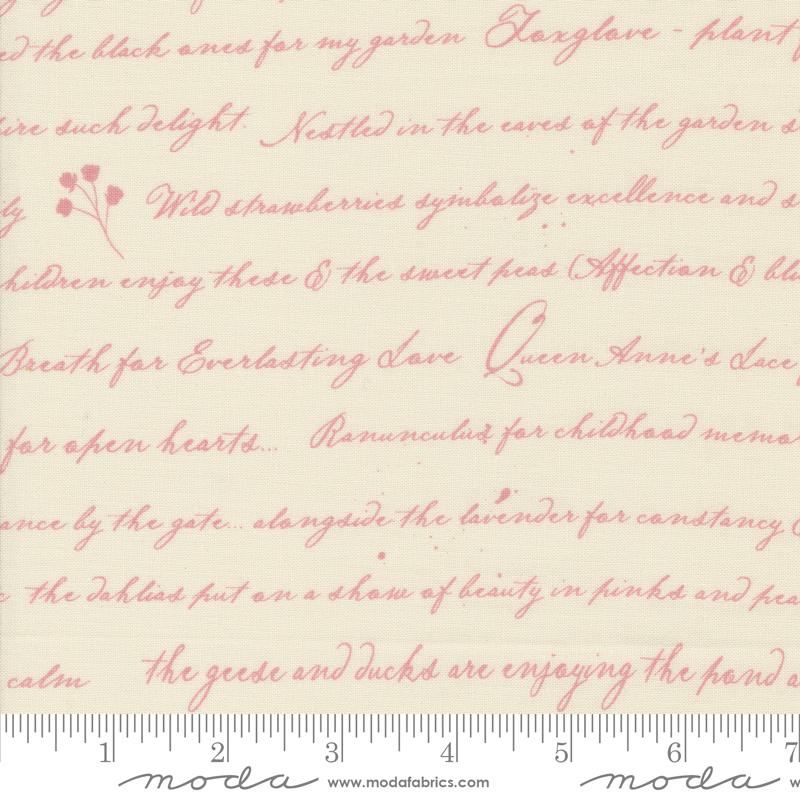 ed the black ones for my garden Foxglove - plant f
ire such delight. Nestled in the eaves of the garden s
ily Wild strawberries symbolize excellence and s
hildren enjoy these & the sweet peas (Affection & bli
Breath for Everlasting Love Queen Anne's Lace f
for open hearts... Ranunculus for childhood memo
ance by the gate... alongside the lavender for constancy (
the dahlias put on a show of beauty in pinks and pea
calm the geese and ducks are enjoying the pond a
1 2 3 4 5 6 7
moda www.modafabrics.com moda w